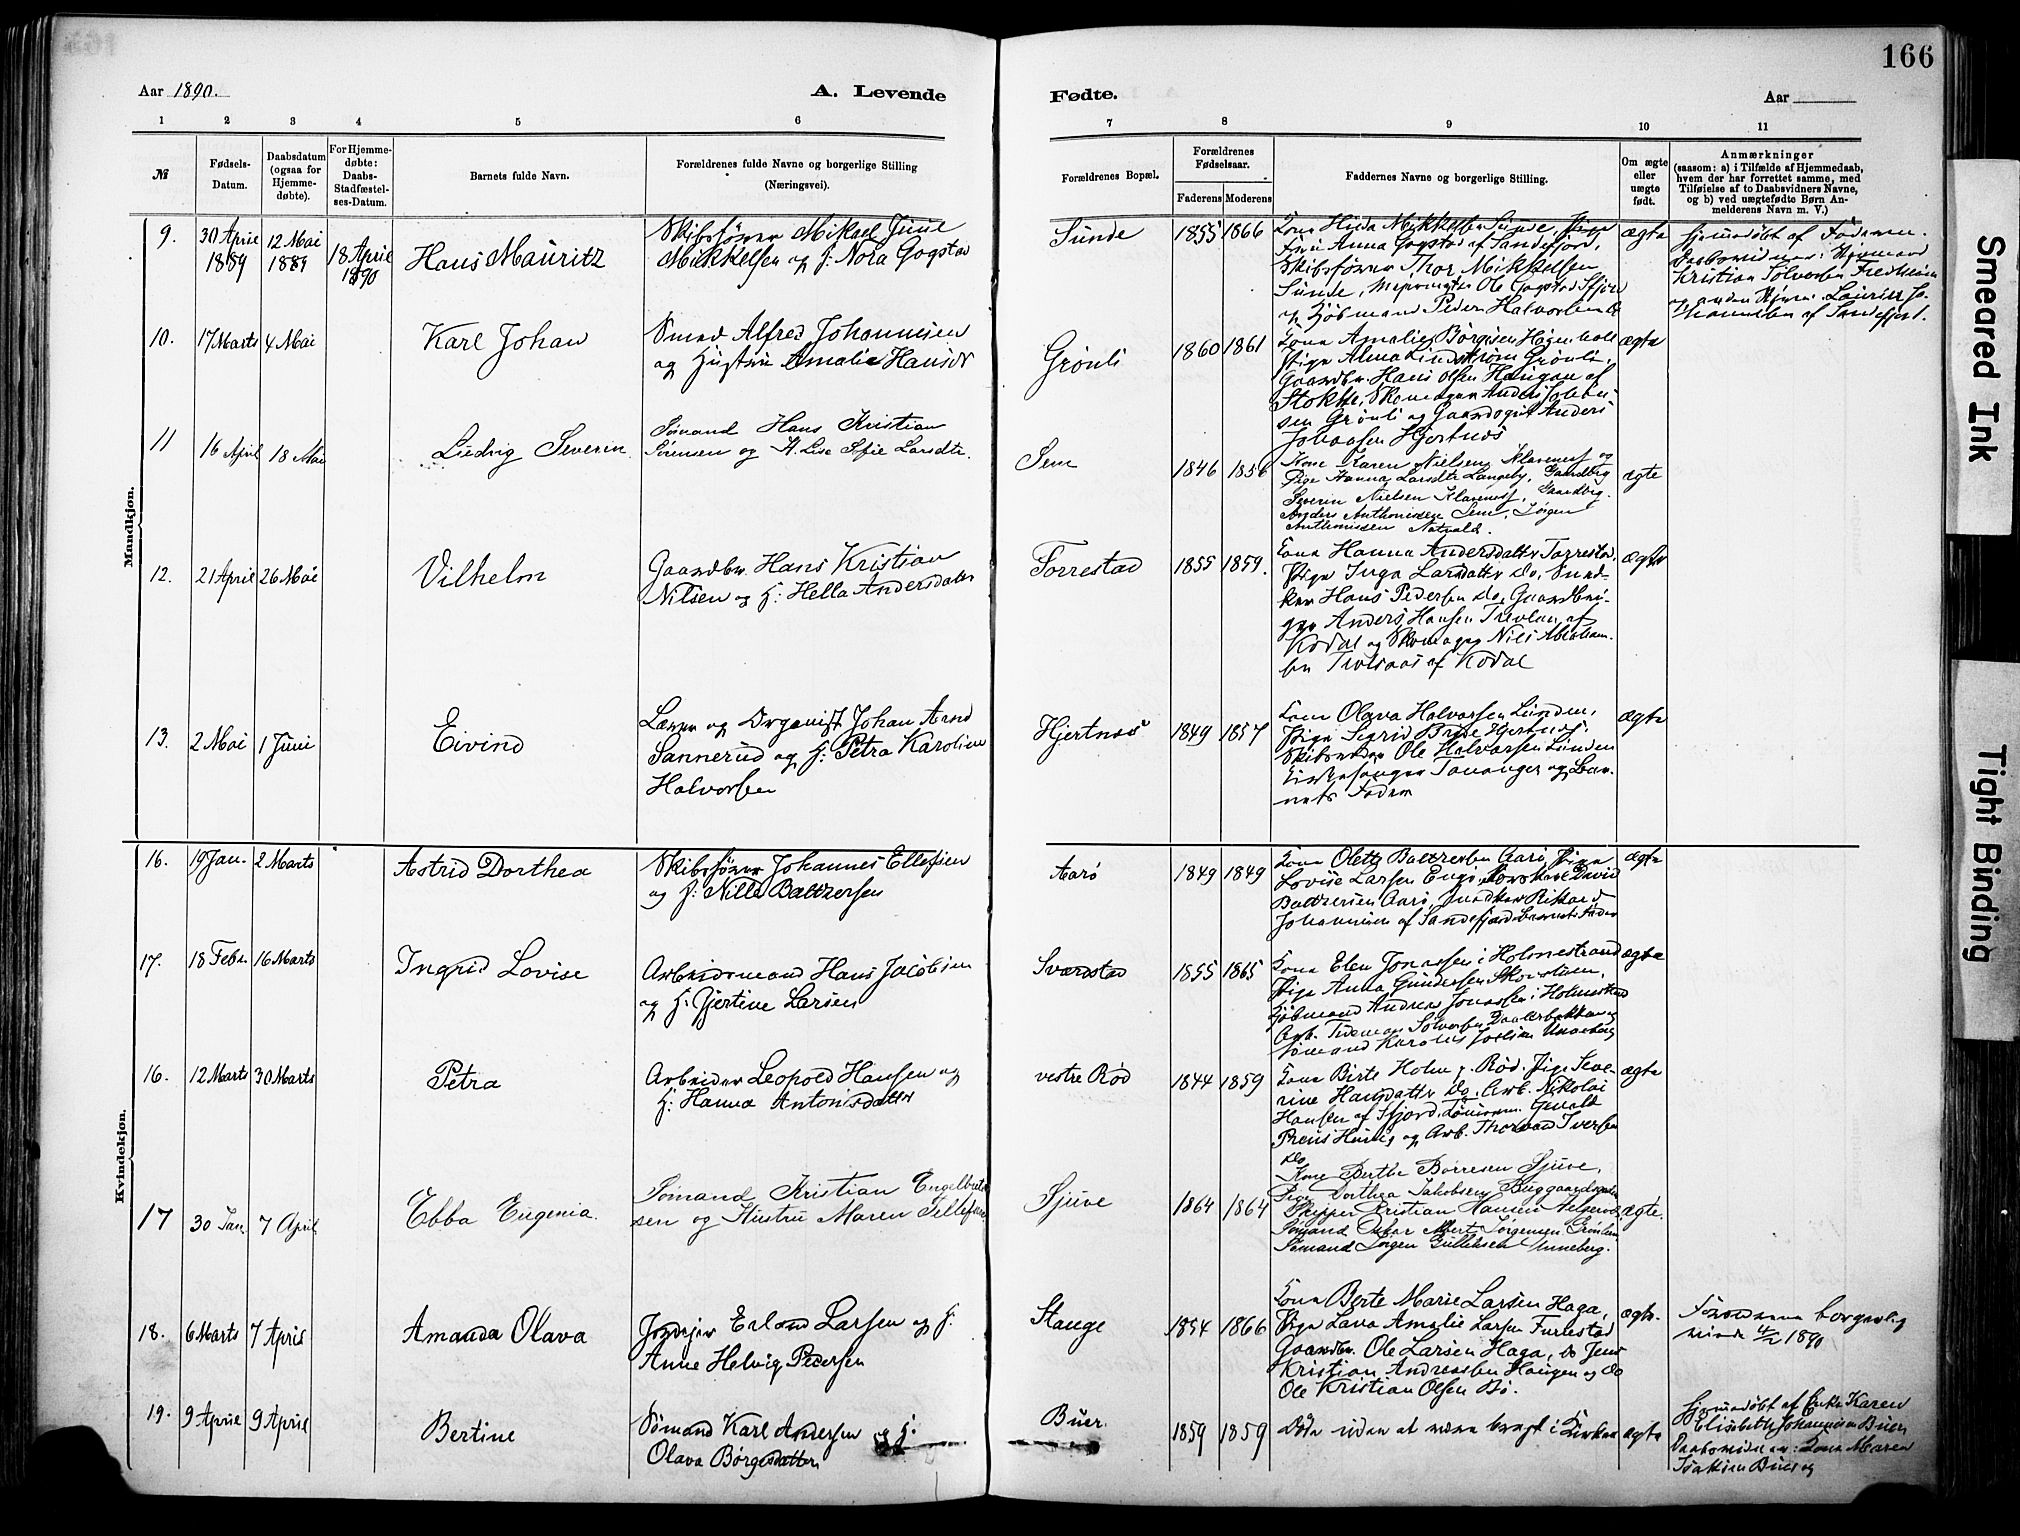 166
Aar 1890.
A. Levende
Fødte.
Aar
1 2 3 4 5 6 7 8 9 10 11
№
Fødsels-Datum.
Daabsdatum (ogsaa for Hjemme-døbte).
For Hjemme-døbte: Daabs-Stadfæstel-ses-Datum.
Barnets fulde Navn.
Forældrenes fulde Navne og borgerlige Stilling (Næringsvei).
Forældrenes Bopæl.
Forældrenes Fødselsaar.
Faderens Moderens
Faddernes Navne og borgerlige Stilling.
Om ægte eller uægte født.
Anmærkninger
(saasom: a) i Tilfælde af Hjemmedaab, hvem der har forrettet samme, med Tilføielse af to Daabsvidners Navne, og b) ved uægtefødte Børn Anmelderens Navn m. V.)
Mandkjøn.
9. 30 April 1889 12 Mai 1889 18 April 1890
Hans Mauritz
Skibsfører Mikael Juue
Mikkelsen og H: Nora Gogstad
Sunde 1855 1866
Kona Hilda Mikkelsen Sunde, Pige
Anna Gogstad af Sandefjord,
Skibsfører Thor Mikkelsen
Sunde, Ole Gogstad Sfjord
og Kjøbmand Peder Halvorsen
ægte
Hjemmedøbt af Faderen.
Daabsvidner:
Kristian Solvorsen
af Sandefjord.
10. 17 Marts 4 Mai
Karl Johan
Smed Alfred Johannesen
og Hustru Amalie Hansdr
Grønli 1860 1861
Kona Amalie Børgesen
Pige Alma Lindstrøm Grønli,
Gaardbr. Hans Olsen Haugan af
Stokke, Skomager Anders
Grønli og Anders
Johansen Hjertnæs
ægte
11 16 April 18 Mai
Ludvig Severin
Sømand Hans Kristian
Sørensen og H. Lise Sofie Larsdtr.
Sem 1846 1856
Kone Karen Nielsen Klavenes og
Pige Hanna Larsdtr Langeby, Gaardbrg
Severin Nielsen Klavenes, Gaardbrg.
Anders Anthonissen Sem, Jørgen
Anthonissen
ægte
12. 21 April 26 Mai
Vilhelm
Gaardbr. Hans Kristian
Nilsen og H: Hella Andersdatter
Torrestad 1855 1859.
Kona Hanna Andersdatter Torrestad,
Pige Inga Larsdatter Do,
Hans Pedersen Do, Gaardbru-
ger Anders Hansen Trevland af
Kodal og Skomager Nils Abraham-
sen af Kodal
ægte
13. 2 Mai 1 Juni
Eivind
Lærer og Organist Johan Arnd
Sannerud og H: Petra Karoline
Halvorsen
Hjertnæs 1849 1857
Kona Olava Halvorsen Lunden,
Pige Sigrid Hjertnæs,
Skibsreder Ole Halvorsen Lunden
Tananger og Bar-
nets Fader
ægte
Kvindekjøn.
16. 19 Jan. 2 Marts
Astrid Dorthea
Skibsfører Johannes Ellefsen
og H: Nilla Baltzersen
Aarø 1849 1849
Kona Olette Baltzersen Aarø, Pige
Lovise Larsen Engø, David
Baltzersen Aarø, Snedker Rikard
Johannesen af Sandefjord Barnets Fader
ægte
17. 18 Febr. 16 Marts
Ingrid Lovise
Arbeidsmand Hans Jacobsen
og H: Gjertine Larsen
Sværstad 1855 1865
Kona Elen Jonassen i Holmestrand
Pige Anna Gundersen
Kjøbmand Andreas Jonassen i Holmestrand
Arb. Tideman Solvorsen
Sømand Karolius
ægte
16. 12 Marts 30 Marts
Petra
Arbeider Leopold Hansen og
H: Hanna Antonisdatter
vestre Rød 1844 1859
Kona Birte Holm v. Rød. Pige Seve-
rine Hansdatter Do, Arb. Nikolai
Hansen af Sfjord,
og Arb. Thorvald Iversen
Do
ægte
17 30 Jan. 7 April
Ebba Eugenia.
Sømand Kristian Engelbret-
sen og Hustru Maren Tellefsen
Sjuve 1864 1864
Kone Berthe Børresen Sjuve,
Pige Dorthea Jakobsen
Skipper Kristian Hansen
Sømand Oskar Albert Jørgensen
Sømand Jørgen Gulliksen Unneberg.
ægte.
18. 6 Marts 7 April
Amanda Olava
Jordeier Erland Larsen og H:
Anne Helvig Pedersen
Stange 1854 1866
Kona Berte Marie Larsen Haga,
Pige Lava Amalie Larsen Furrestad
Gaardbr. Ole Larsen Haga, Do Jens
Kristian Andreassen Haugen og Do
Ole Kristian Olsen Bø.
ægte.
Forældrene borgerlig
viede 4/2 1890
19. 9 April 9 April
Bertine
Sømand Karl Andersen og H:
Olava Børgesdatter
Buer. 1859 1859
Døde uden at være bragt i Kirken
ægte
Hjemmedøbt af Enke Karen
Elisabeth Johannesen Buer
Daabsvidner: Kona Maren
Isaksen Buer og
Smeared Ink
Tight Binding